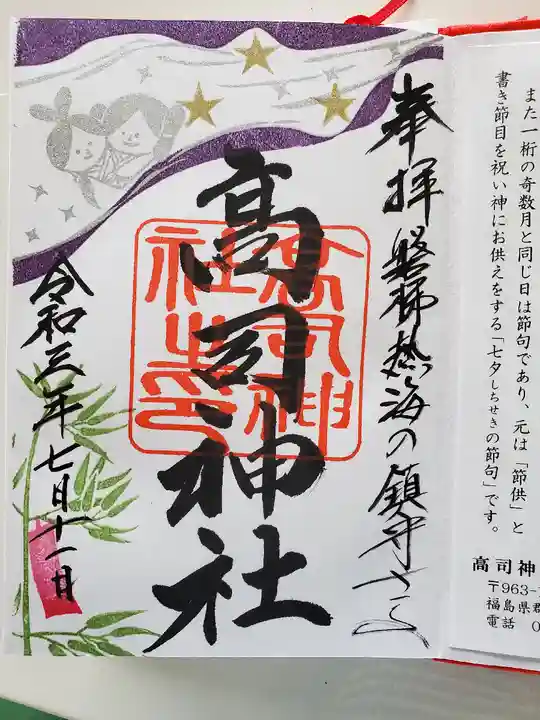 また一桁の奇数月と同じ日は節句であり、元は「節供」と
書き節目を祝い神にお供えをする「七夕しちせきの節句」です。
高司神
〒963-
福島県郡
電話 0
奉拝 磐梯熱海の鎮守さま
高司神社
高司神社之印
令和三年七月十一日